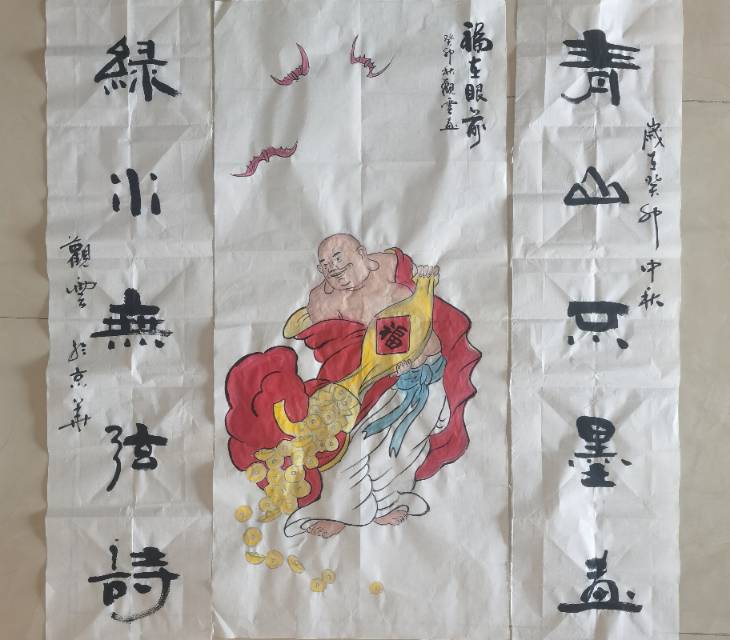 青山只墨畫
歲在癸卯中秋
福在眼前
癸卯秋觀雲画
福
綠水無弦詩
觀雲於京華